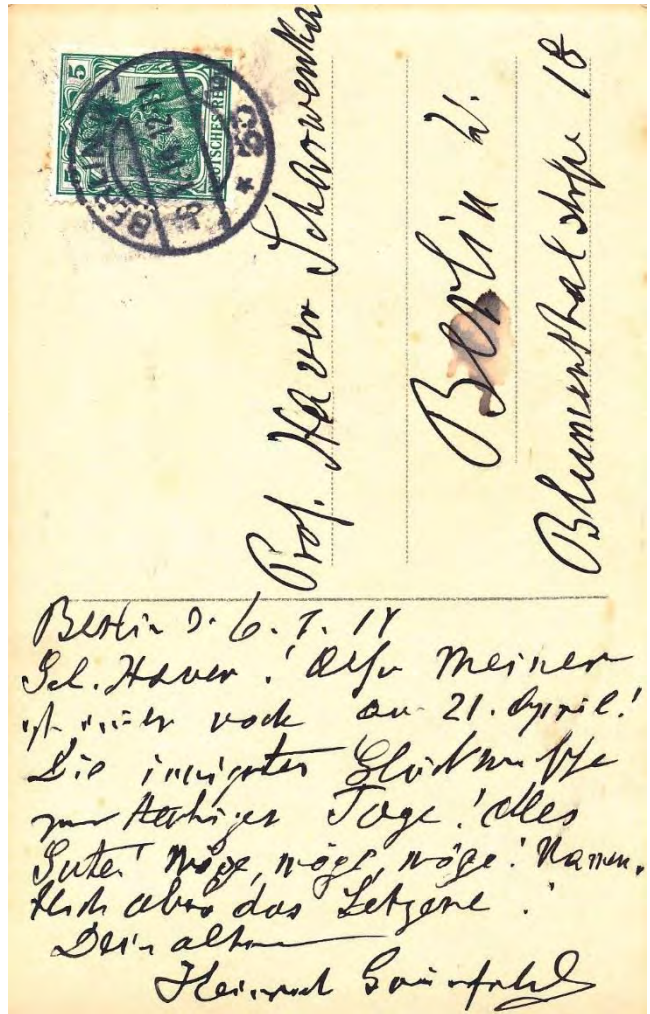 5
DEUTSCHES REICH
BERLIN
Prof. Xaver Scharwenka
Berlin W.
Blumenthalstraße 18
Berlin d. 6. I. 18
Xaver! Meiner
ist immer noch am 21. April!
Die innigsten Glückwünsche
zum heutigen Tage! Alles
Gute! Möge, möge, möge! Namen-
tlich aber das Letztere!
Dein alter
Heinrich Grünfeld